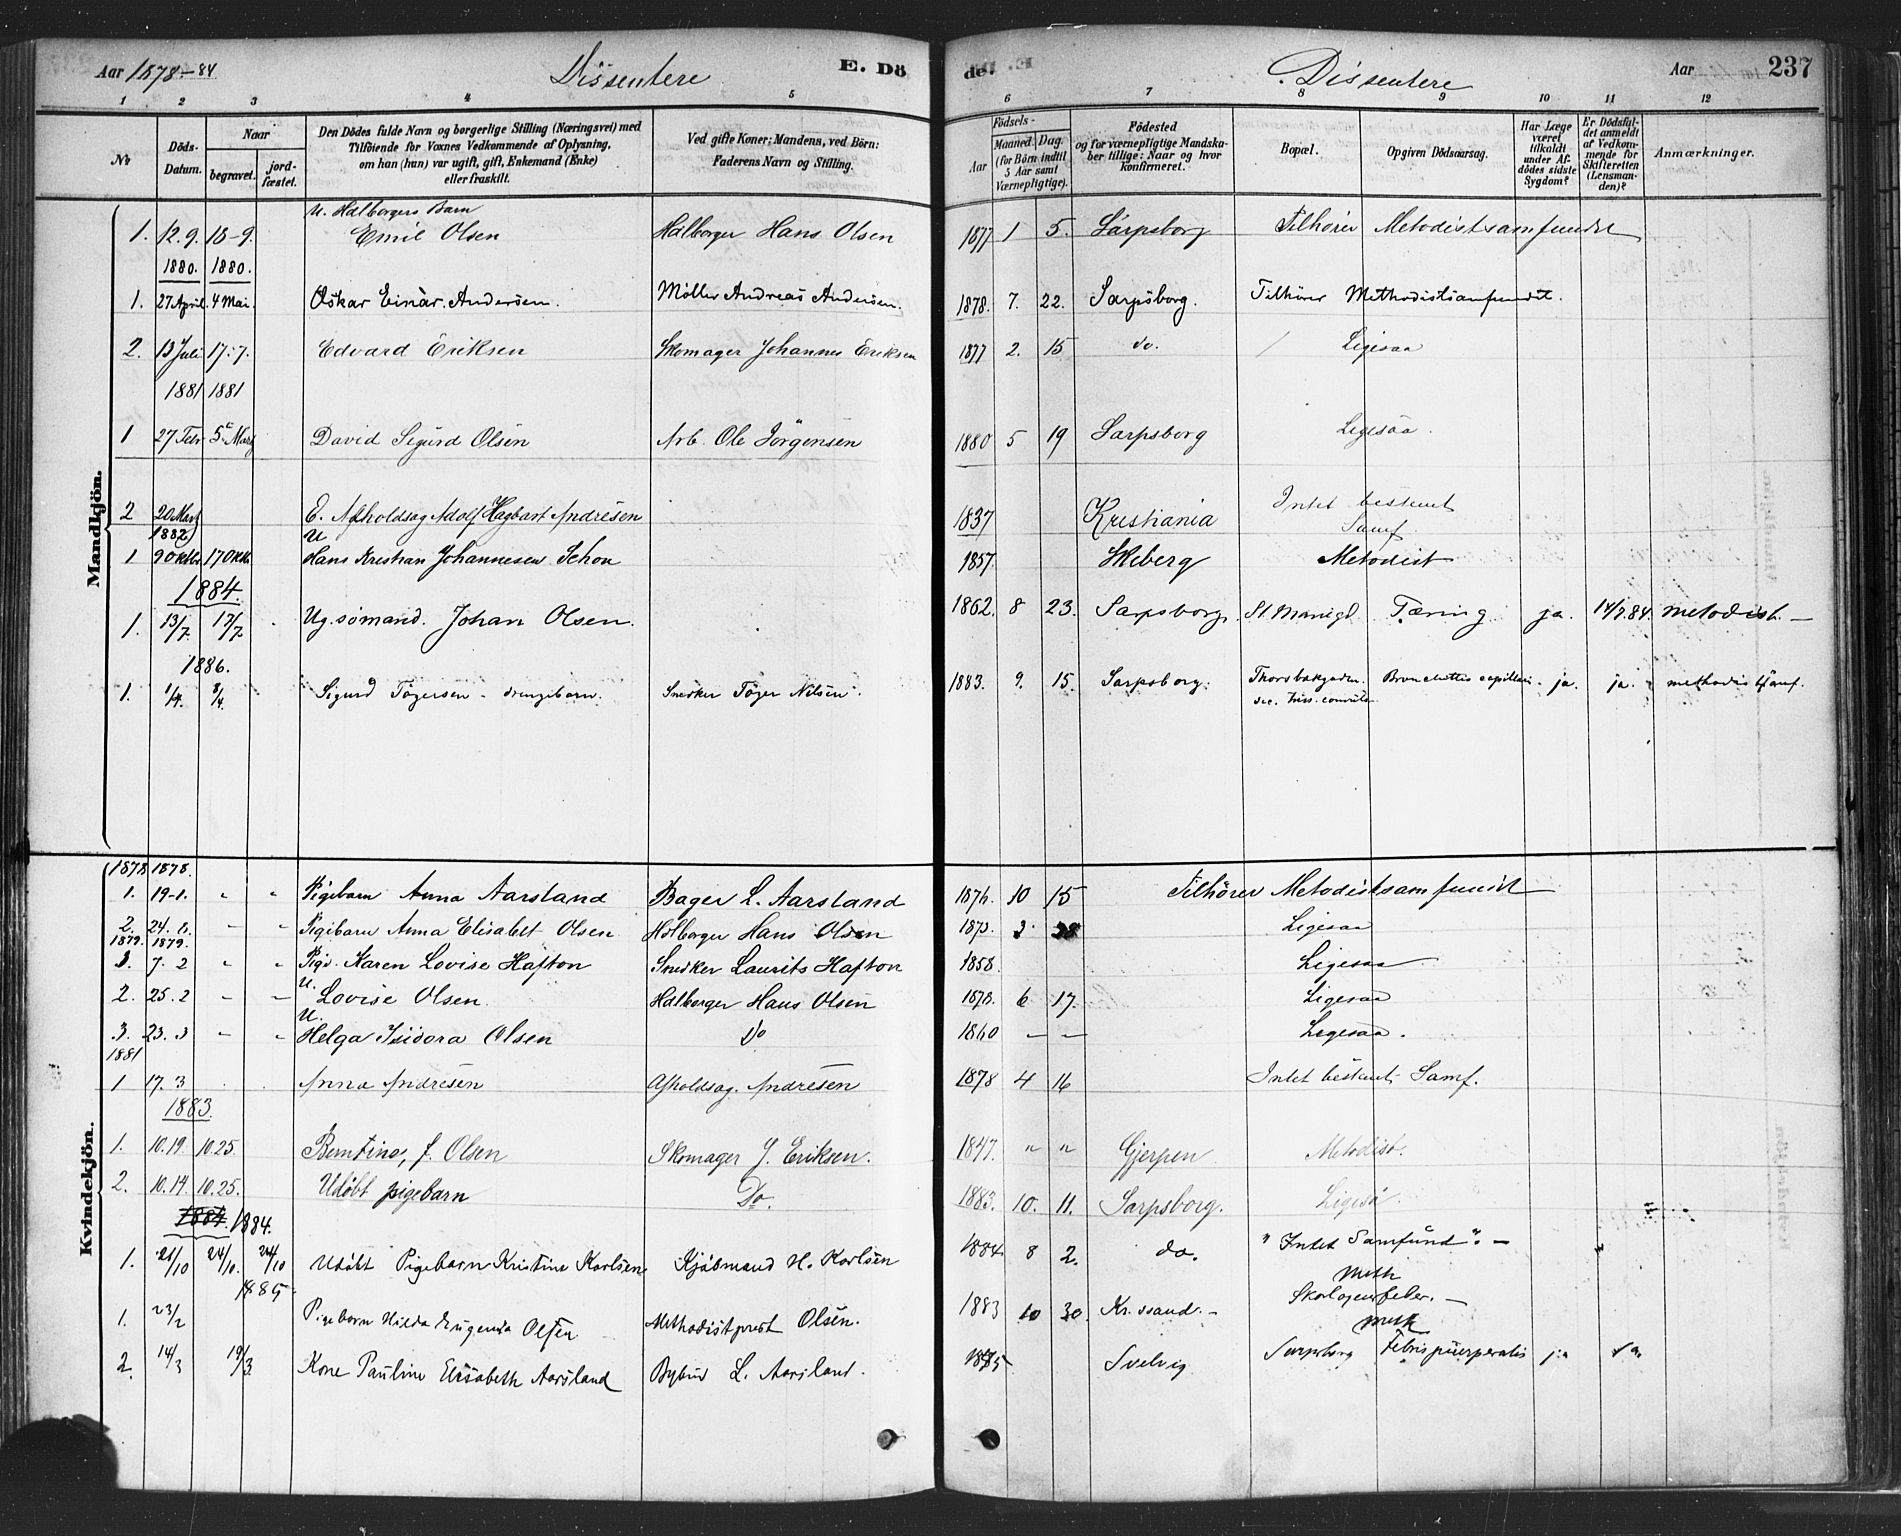 Aar 1878-84 Dissentere E. Dö
de. Dissentere Aar 237
1 2 3 4 5
6 7 8 9 10 11 12
No
Döds-Datum.
Naar
begravet.
jord-fæstet.
Den Dödes fulde Navn og borgerlige Stilling (Næringsvei) med
Tilföiende for Voxnes Vedkommende af Oplysning,
om han (hun) var ugift, gift, Enkemand (Enke)
eller fraskilt.
Ved gifte Koner: Mandens, ved Börn:
Faderens Navn og Stilling.
Födsels-
Aar
Maaned. Dag.
(for Börn indtil
5 Aar samt
Værnepligtige).
Födested
og for værnepligtige Mandska-
ber tillige: Naar og hvor
konfirmeret.
Bopæl.
Opgiven Dödsaarsag.
Har Læge
været
tilkaldt
under Af-
dödes sidste
Sygdom?
Er Dödsfal-
det anmeldt
af Vedkom-
mende for
Skifteretten
(Lensman-
den)?
Anmærkninger.
Mandkjön.
U. Halborgers Barn
1. 12.9. 18-9. Emil Olsen Halborger Hans Olsen 1877 1 5. Sarpsborg Tilhörer Metodistsamfundet
1880. 1880.
1. 27 April 4 Mai. Oskar Einar Andersen. Möller Andreas Andersen. 1878. 7. 22. Sarpsborg. Tilhörer Methodistsamfundet.
2. 13 Juli 17-7. Edvard Eriksen Skomager Johannes Eriksen 1877 2. 15 do. Ligesaa
1881 1881
1 27 Febr 5 Marts David Sigurd Olsen Arb. Ole Jörgensen 1880 5 19 Sarpsborg Ligesaa.
2 20 Marts E. Afholdsag Adolf Hagbart Andresen 1837 Kristiania Intet bestemt Samf.
1882
U
1 9 Oktbr 17 Oktb Hans Kristian Johannesen Schou 1857 Skeberg Metodist
1884.
1. 13/7. 17/7. Ug. sömand. Johan Olsen. 1862. 8 23. Sarpsborg. St. Mariegd. Tæring ja. 14/7.84. Metodist. —
1886.
1. 1/4. 8/4. Sigurd Tögersen - drengebarn. Snedker Töger Nilsen. 1883. 9. 15. Sarpsborg. Bronchittis capillari ja. ja. methodistsamf.
Kvindekjön.
1878 1878.
1. 19-1. " " Pigebarn Anna Aarsland Bager L. Aarsland 1876. 10 15 Tilhörer Metodistsamfundet
2. 24. " " Pigebarn Anna Elisabet Olsen Halborger Hans Olsen 3 Ligesaa
1879. 1879.
1. 7. 2 " " Pige. Karen Lovise Hafton Snedker Laurits Hafton 1858. Ligesaa
U.
2. 25. 2 " " Lovise Olsen. Halborger Hans Olsen 1878. 6 17. Ligesaa
U.
3. 23. 3 " " Helga Isidora Olsen Do 1860 — — Ligesaa.
1881
1 17. 3 Anna Andresen Afholdsag. Andresen 1878 4 16 Intet bestemt Samf.
1883.
1. 10.19. 10.25. Berntine, f. Olsen Skomager J. Eriksen. 1847. " " Gjerpen Metodist.
2. 10.14. 10.25. Udöbt pigebarn Do. 1883. 10. 11. Sarpsborg. Ligeså
1884. 1884.
1. 21/10 24/10. 24/10 Udöbt Pigebarn Kristine Karlsen Kjöbmand H. Karlsen 1884. 8 2. do. "Intet Samfund". —
1885. Meth
1. 23/2 Pigebarn Hilda Eugenia Olsen Methodistprest Olsen. 1883 10 30. Kr.ssand. — Skarlagensfeber. —
Meth
2. 14/3 19/3. Kone Pauline Elisabeth Aarsland L. Aarsland. Svelvig Sarpsborg Febris puerperalis ja ja